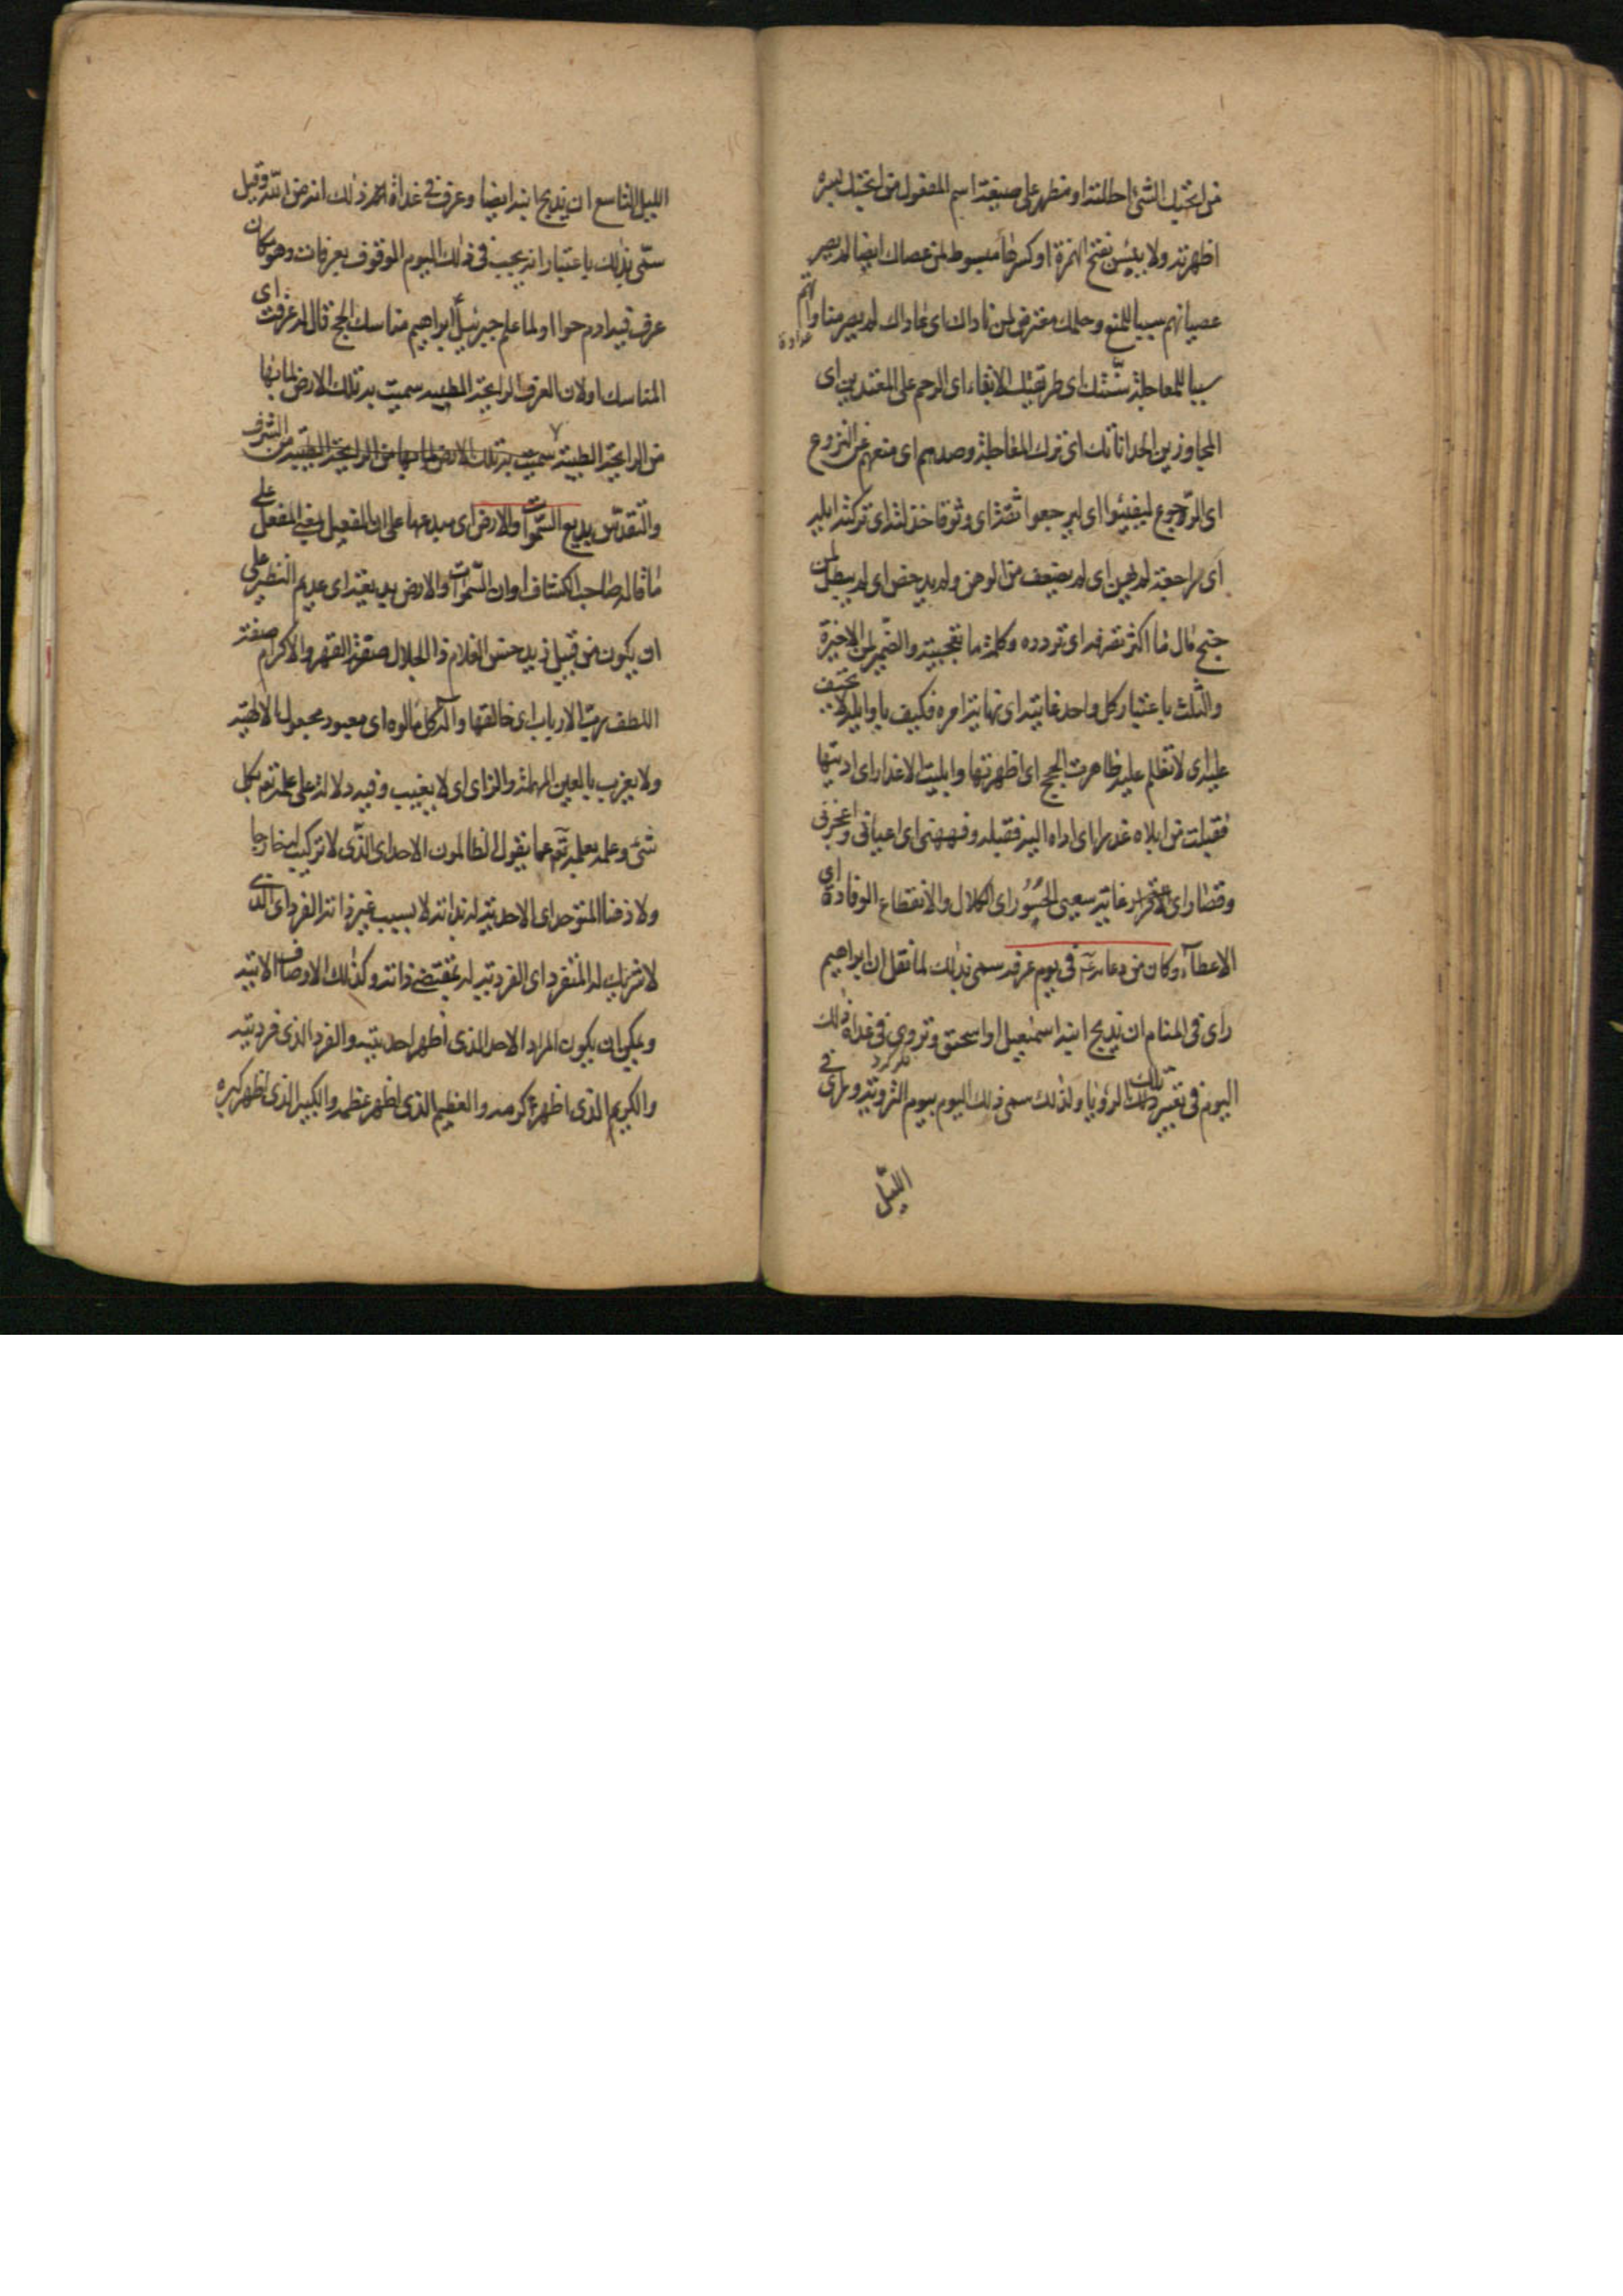 من اختيك الشئ احللته او مظهر على صيغة اسم المفعول من اختيك لغيره
اظهرته ولا يبئس بفتح الهمزة او كسرها مبسوط لمن عصاك ايضا لم يصر
عصيانهم سببا للمنع وحلمك معترض لمن ناداك اى عاداك لم يصر مناواتهم
عداوة
سببا للمعاجلة سنتك اى طريقتك الابقاء اى الرحم على المعتدين اى
المجاوزين الحد اناتك اى ترك المعاجلة وصدهم اى منعهم عن النزوع
اى الرجوع ليفيئوا اى ليرجعوا ثقة اى وثوقا خذلته اى تركته ايلة
اى راجعة لم يهن اى لم يضعف من الوهن ولم يدحض اى لم يبطل لمن
جنح مال ما اكثر تصرفه اى تردده وكلمة ما تعجبية والضمير لمن الاخيرة
والثلث باعتبار كل واحد غايته اى نهاية امره فكيف يا وايلاه لا تحيف
عليه اى لا تظلم عليه ظاهرت الحجج اى اظهرتها وابليت الاعذار اى اديتها
فقبلت من ابلاه عذرا اى اداه اليه فقبله وفههنى اى اعيانى واعجزنى
وقصاراى الاقرار غايته سعيى الحسور اى الكلال والانقطاع الوفادة اى
الاعطاء وكان من دعائه ع فى يوم عرفة سمى بذلك لما نقل ان ابراهيم
راى فى المنام ان يذبح ابنه اسمعيل او اسحق وتروى فى غداة ذلك
فكر كرد
اليوم فى تعبير تلك الرؤيا ولذلك سمى ذلك اليوم بيوم التروية وراى فى
الليل
الليل التاسع ان يذبح ابنه ايضا وعرف فى غداة ذلك انه من الله وقيل
سمى بذلك باعتبار انه يجب فى ذلك اليوم الوقوف بعرفات وهو مكان
عرف فيه ادم حوا او لما علم جبرئيل ابراهيم مناسك الحج قال له عرفت اى
المناسك او لان العرف الرايحة الطيبة سميت به تلك الارض لما بها
من الرايحة الطيبة سميت به تلك الارض لما بها من الرايحة الطيبة من الشرف
والتقدس بديع السموات والارض اى مبدعها على ان الفعيل بمعنى المفعل على
ما قاله صاحب الكشاف او ان السموات والارض بديعة اى عديم النظير على
ان يكون من قبيل زيد حسن الغلام ذا الجلال صفة القهر والاكرام صفة
اللطف رب الارباب اى خالقها واله كل مالوه اى معبود مجعول الالهية
ولا يعزب بالعين المهملة والزاى اى لا يغيب وفيه دلالة على علمه تع بكل
شئ وعلمه بعلمه تع عما يقول الظالمون الاحد اى الذى لا تركيب له خارجا
ولا ذهنا المتوحد اى الاحدية له بذاته لا بسبب غير ذاته الفرد اى الذى
لا شريك له المتفرد اى الفردية له بمقتضى ذاته وكذلك الاوصاف الاتية
ويمكن ان يكون المراد الاحد الذى اظهر احديته والفرد الذى فرديته
والكريم الذى اظهر كرمه والعظيم الذى اظهر عظمه والكبير الذى اظهر كبره